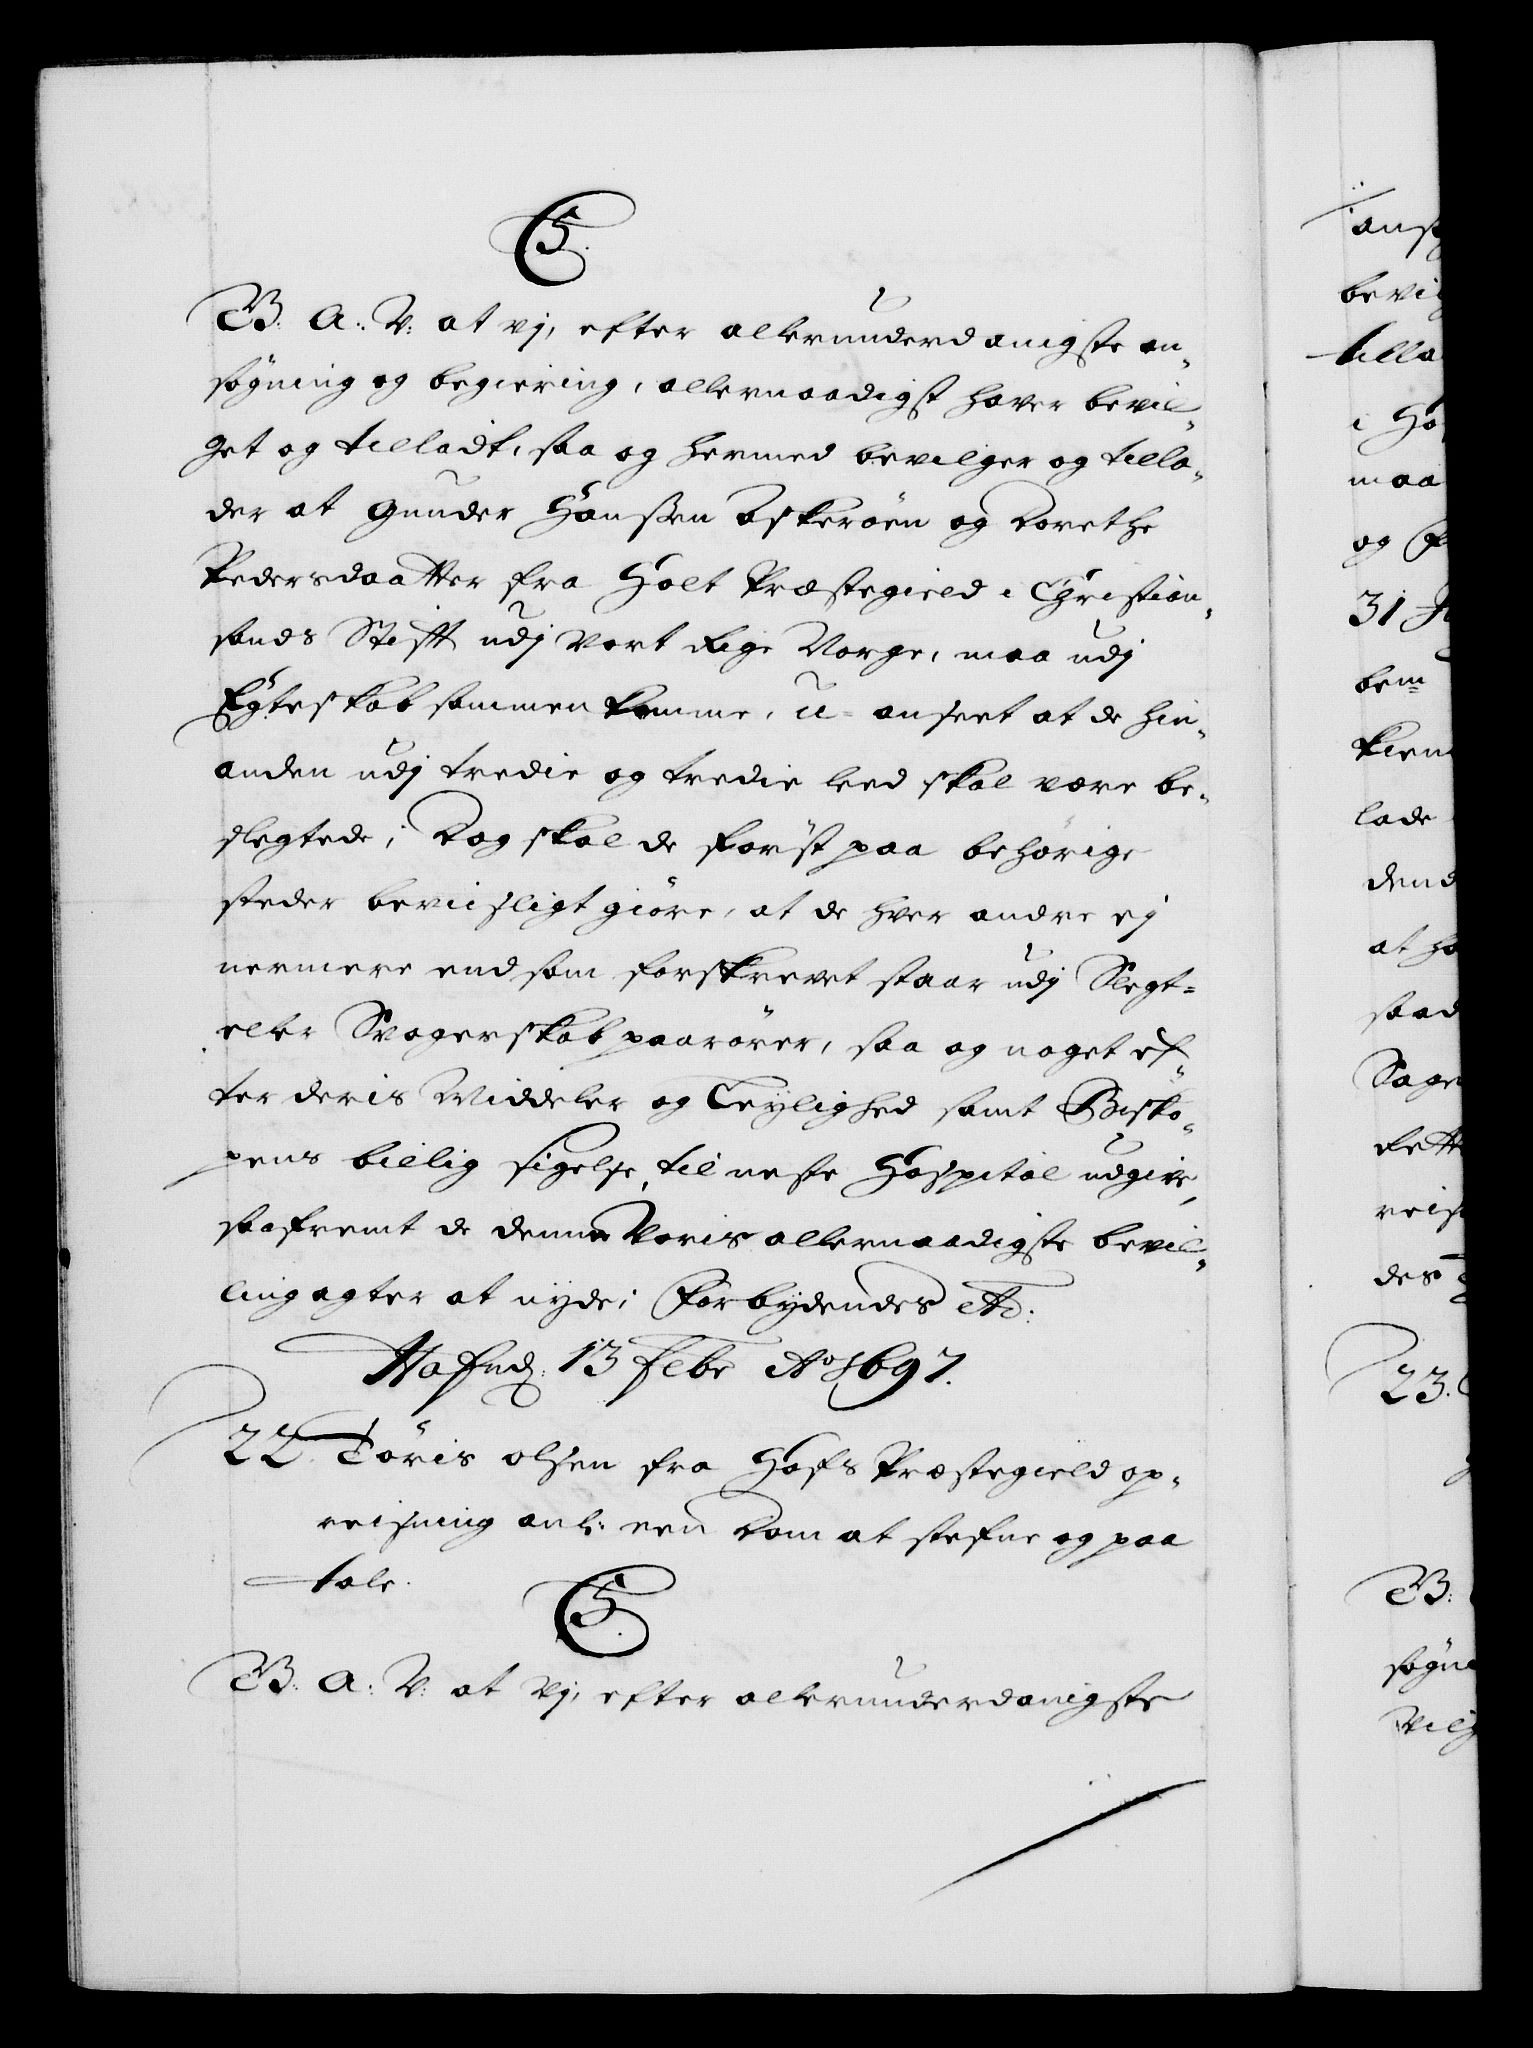 C5.
G. A. V. at vj, efter allerunderdanigste an-
søgning og begiering, allernaadigst haver bevil-
get og tilladt, saa og hermed bevilger og tilla-
der at Gunder Hanssen Askerøen og Dorethe
Pedersdaatter fra Holt Præstegield i Christian-
sands Stifft udj Vort Rige Norge, maa udj
Egteskab sammen komme, u-anseet at de hin-
anden udj tredie og tredie leed skal være be-
slegtede; Dog skal de først paa behørige
steder beviisligt giøre, at de hver andre ej
nermere end som forskrevet staar udj Slegt-
eller Svogerskab paarører, saa og noget ef-
ter deris Middeler og Leylighed samt Bisko-
pens billig sigelse, til neste Hospital udgive,
saafremt de denne Voris allernaadigste bevil-
ling agter at nyde; Forbydendes etc:
Hafnd: 13 Febr Ao 1697.
22. Tøris Olsen fra Hofs Præstegield op-
reisning anl: een Dom at stefne og paa
tale.
C5.
G. A. V. at Vj, efter allerunderdanigste
ansø
bevil
tilla
i Ho
maa
og
31
bem
kien
lade
dend
at ha
saad
Sage
rette
reis
des
23.
G:
søgn
vilg